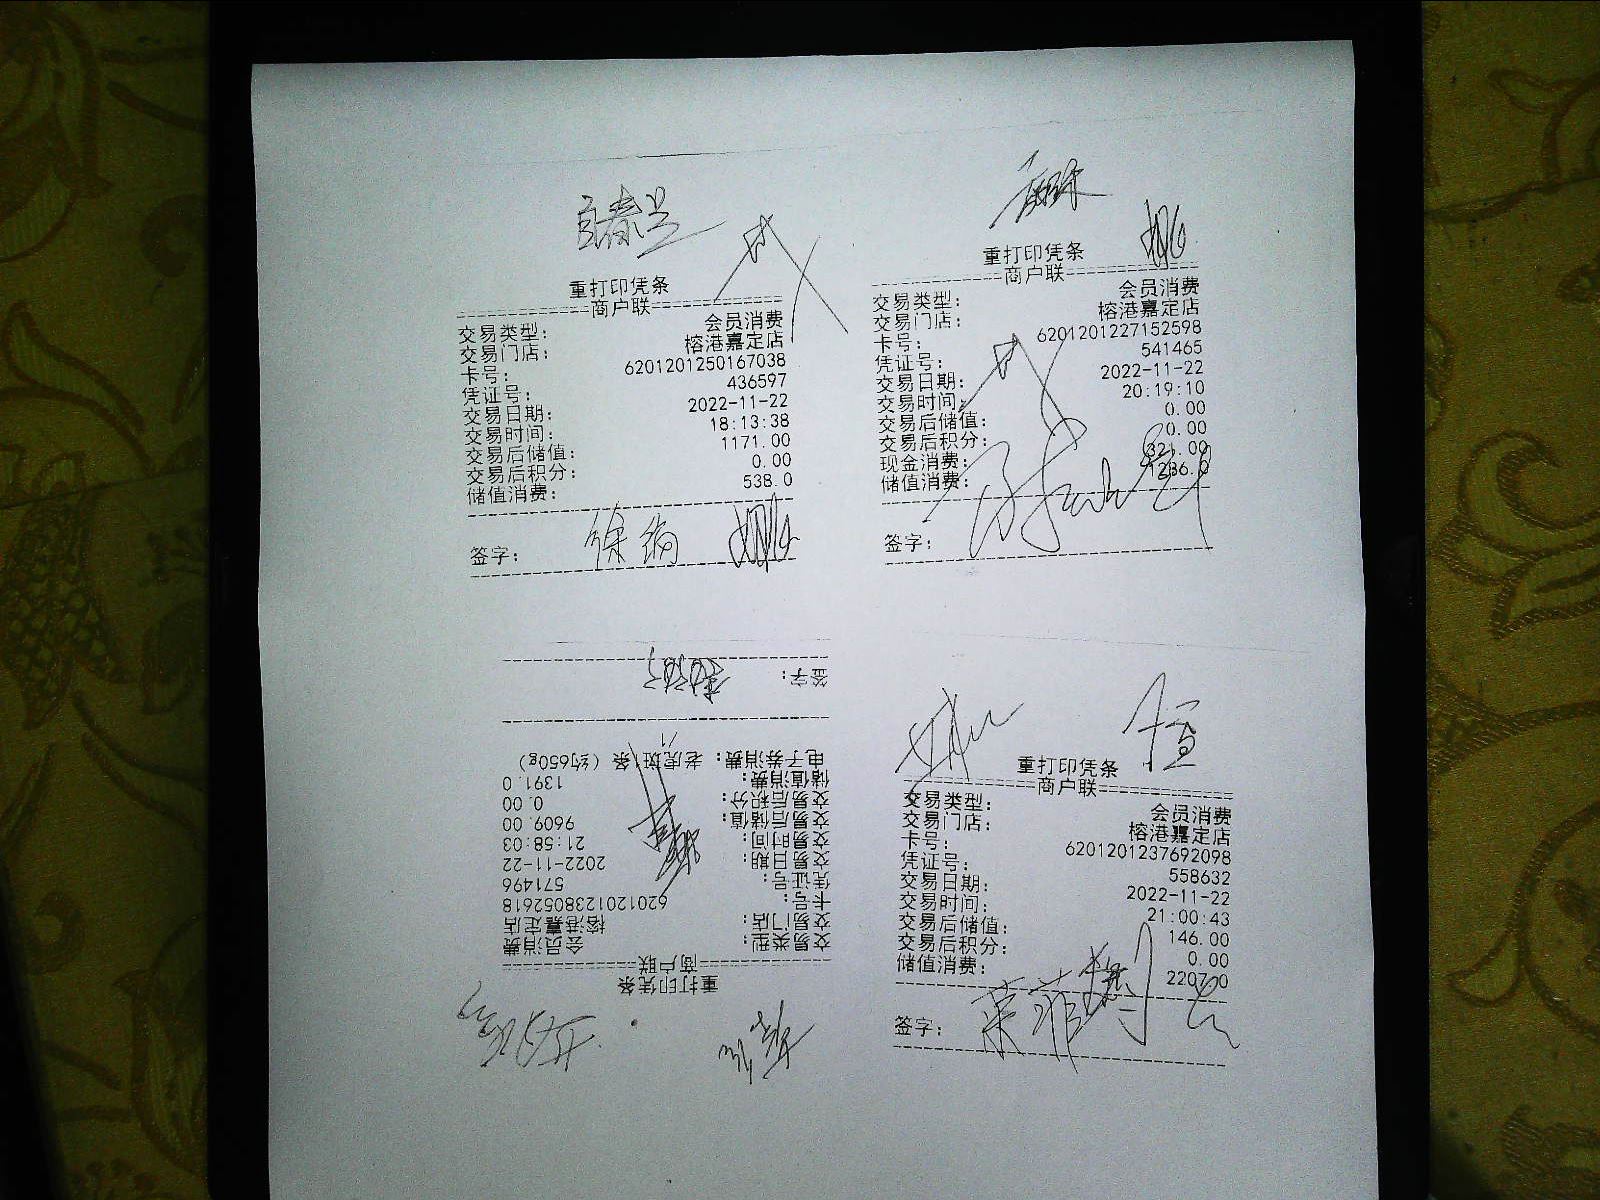 重打印凭条
商户联
交易类型: 会员消费
交易门店: 榕港嘉定店
卡号: 6201201250167038
凭证号: 436597
交易日期: 2022-11-22
交易时间: 18:13:38
交易后储值: 1171.00
交易后积分: 0.00
储值消费: 538.0
签字:
重打印凭条
商户联
交易类型: 会员消费
交易门店: 榕港嘉定店
卡号: 6201201227152598
凭证号: 541465
交易日期: 2022-11-22
交易时间: 20:19:10
交易后储值: 0.00
交易后积分: 0.00
现金消费: 321.00
储值消费: 1236.0
签字:
重打印凭条
商户联
交易类型: 会员消费
交易门店: 榕港嘉定店
卡号: 6201201238052618
凭证号: 571496
交易日期: 2022-11-22
交易时间: 21:58:03
交易后储值: 9609.00
交易后积分: 0.00
储值消费: 1391.0
电子券消费: 老虎斑1条 (约650g)
/1
签字:
重打印凭条
商户联
交易类型: 会员消费
交易门店: 榕港嘉定店
卡号: 6201201237692098
凭证号: 558632
交易日期: 2022-11-22
交易时间: 21:00:43
交易后储值: 146.00
交易后积分: 0.00
储值消费: 2207.0
签字: